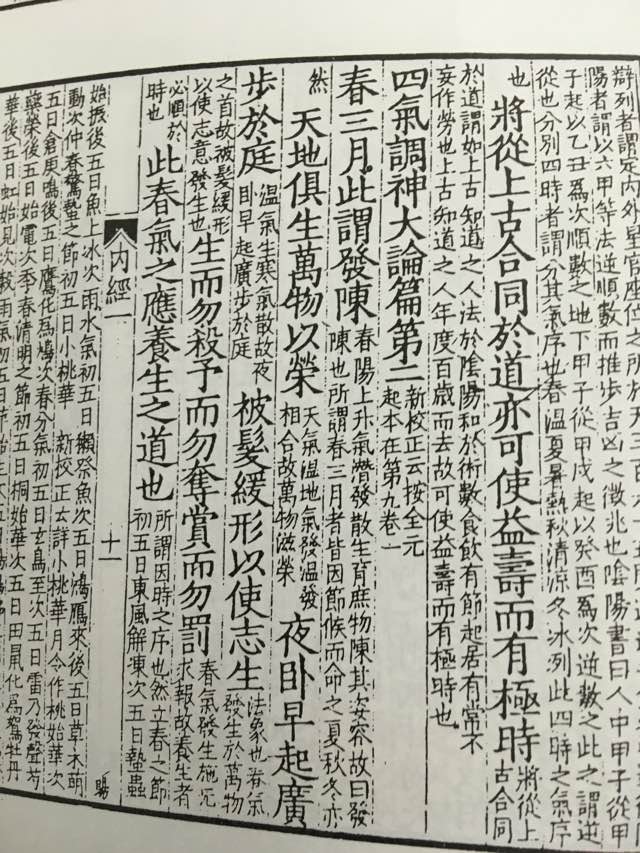 辯列者謂定內外星官座位之所於天三百六十五度
陽者謂以六甲等法逆順數而推步吉凶之徵兆也陰陽書曰人中甲子從甲
子起以乙丑爲次順數之地下甲子從甲戌起以癸酉爲次逆數之此之謂逆
從也分別四時者謂分其氣序也春溫夏暑熱秋清涼冬冰冽此四時之氣序
也
將從上古合同於道亦可使益壽而有極時
將從上
古合同
於道謂如上古知道之人法於陰陽和於術數食飲有節起居有常不
妄作勞也上古知道之人年度百歲而去故可使益壽而有極時也
四氣調神大論篇第二
新校正云按全元
起本在第九卷
春三月此謂發陳
春陽上升氣潛發散生育庶物陳其姿容故曰發
陳也所謂春三月者皆因節候而命之夏秋冬亦
然
天地俱生萬物以榮
天氣溫地氣發溫發
相合故萬物滋榮
夜臥早起廣
步於庭
溫氣生寒氣散故夜
臥早起廣步於庭
被髮緩形以使志生
法象也春氣
發生於萬物
之首故被髮緩形
以使志意發生也
生而勿殺予而勿奪賞而勿罰
春氣發生施无
求報故養生者
必順於
時也
此春氣之應養生之道也
所謂因時之序也然立春之節
初五日東風解凍次五日蟄蟲
內經一
十一
始振後五日魚上冰次雨水氣初五日獺祭魚次五日鴻鴈來後五日草木萌
動次仲春驚蟄之節初五日小桃華
新校正云詳小桃華月令作桃始華次
五日倉庚鳴後五日鷹化爲鳩次春分氣初五日玄鳥至次五日雷乃發聲芍
藥榮後五日始電次季春清明之節初五日桐始華次五日田鼠化爲鴽牡丹
華後五日虹始見次穀雨氣初五日萍始生次五日